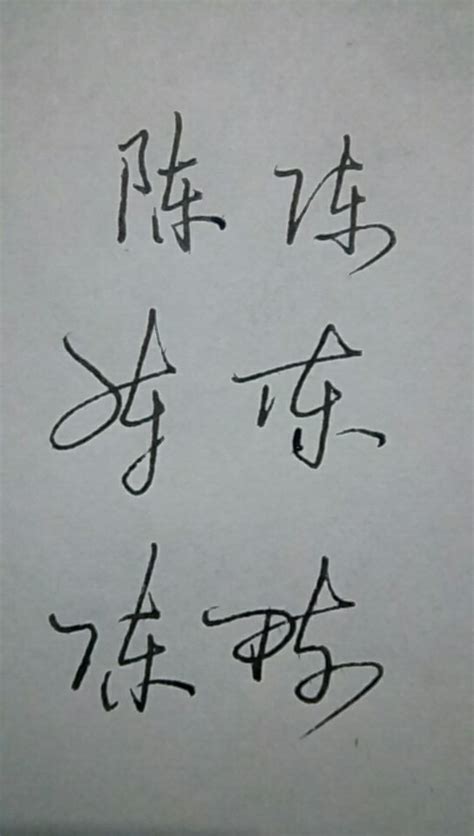 陈 陈
陈 陈
陈 陈